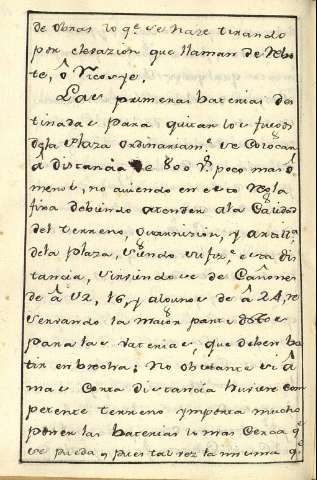 de obras lo q.e se haze tirando
por elevazion que llaman de Rebo
te, ô Ricoxe.
Las primeras baterias des
tinadas para quitar los fuegos
dela Plaza ordinariam.te se colocan
â distancia de 800 v.s poco mas ô
menos, no aviendo en esto regla
fixa debiendo atender ala Calidad
del terreno, Guarnizion, y artill.a
dela plaza, siendo sufiz.te esta dis
tancia, sirviendose de Cañones
de â 12, 16, y algunos de â 24, re
servando la maior parte
para las vaterias, que deben ba
tir en brecha; No obstante si â
mas Corta distancia huviere com
petente terreno ymporta mucho
poner las baterias lo mas Cerca q.e
se pueda, pues tal vez la misma q.e